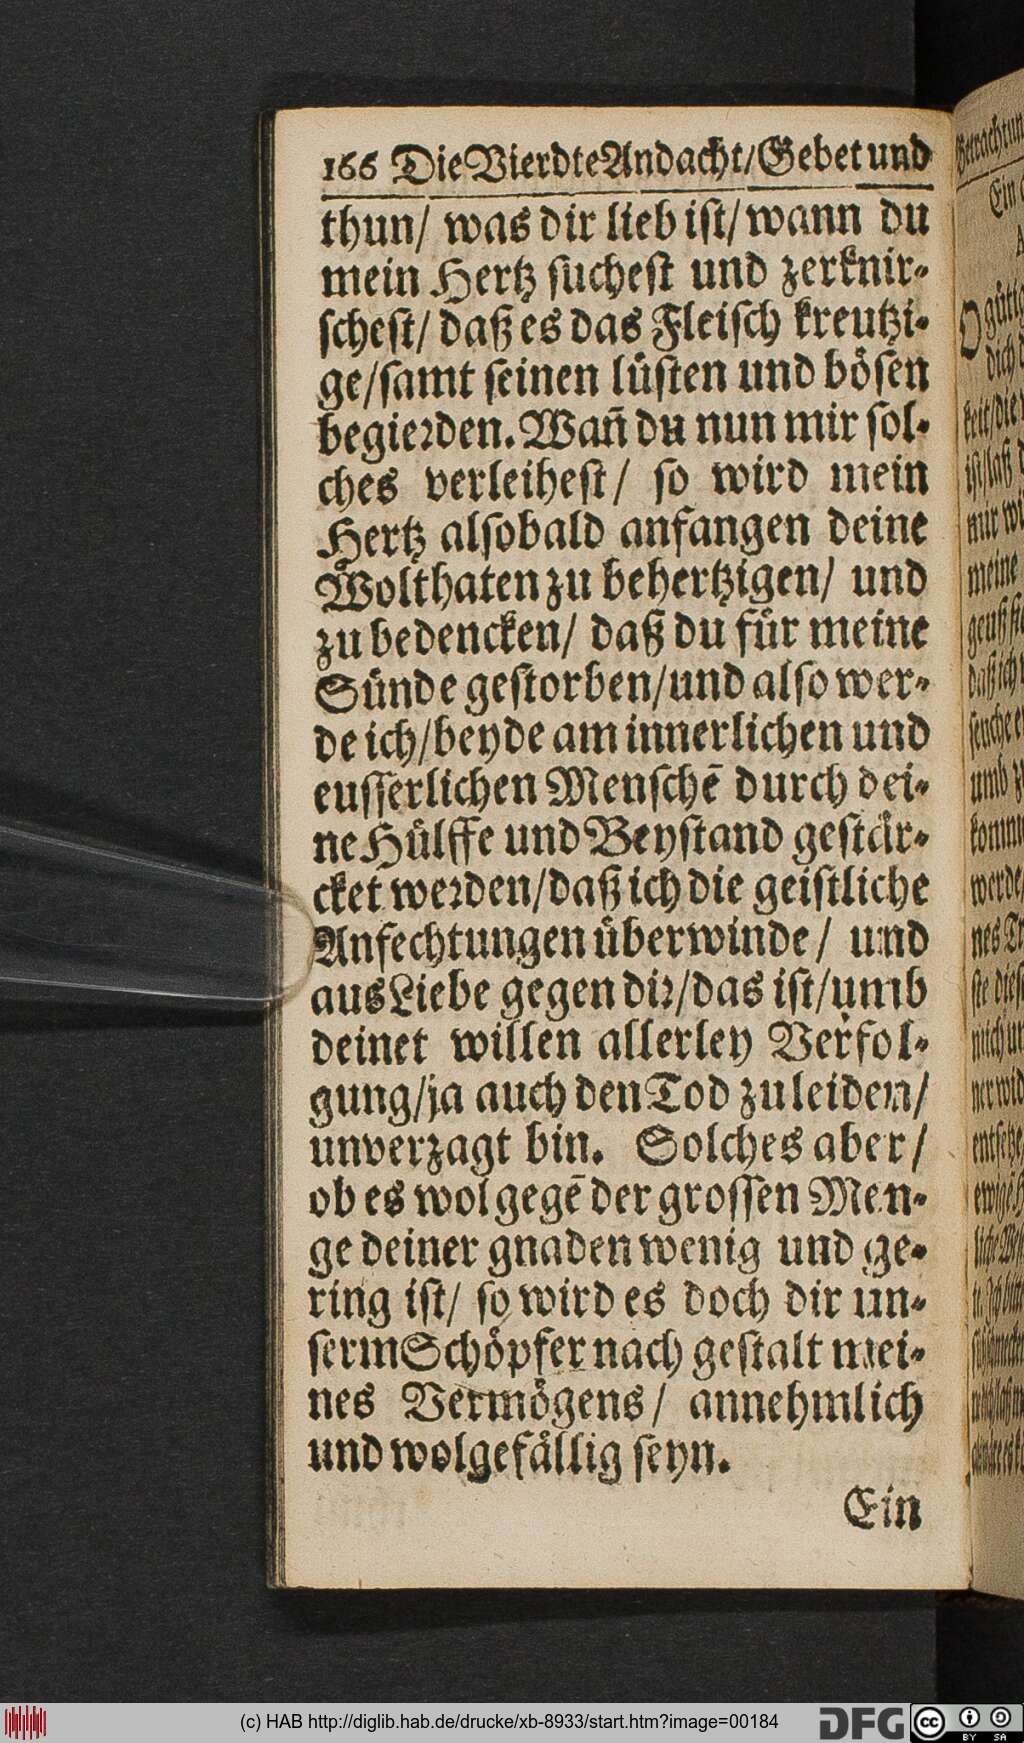 166 Die Vierdte Andacht/ Gebet und
thun/ was dir lieb ist/ wann du
mein Hertz suchest und zerknir-
schest/ daß es das Fleisch kreutzi-
ge/ samt seinen lüsten und bösen
begierden. Wañ du nun mir sol-
ches verleihest/ so wird mein
Hertz alsobald anfangen deine
Wolthaten zu behertzigen/ und
zu bedencken/ daß du für meine
Sünde gestorben/ und also wer-
de ich/ beyde am innerlichen und
eusserlichen Menschē durch dei-
ne Hülffe und Beystand gestär-
cket werden/ daß ich die geistliche
Anfechtungen überwinde/ und
aus Liebe gegen dir/ das ist/ umb
deinet willen allerley Verfol-
gung/ ja auch den Tod zu leiden/
unverzagt bin. Solches aber/
ob es wol gegē der grossen Men-
ge deiner gnaden wenig und ge-
ring ist/ so wird es doch dir un-
serm Schöpfer nach gestalt mei-
nes Vermögens/ annehmlich
und wolgefällig seyn.
Ein
(c) HAB http://diglib.hab.de/drucke/xb-8933/start.htm?image=00184
DFG
cc BY SA